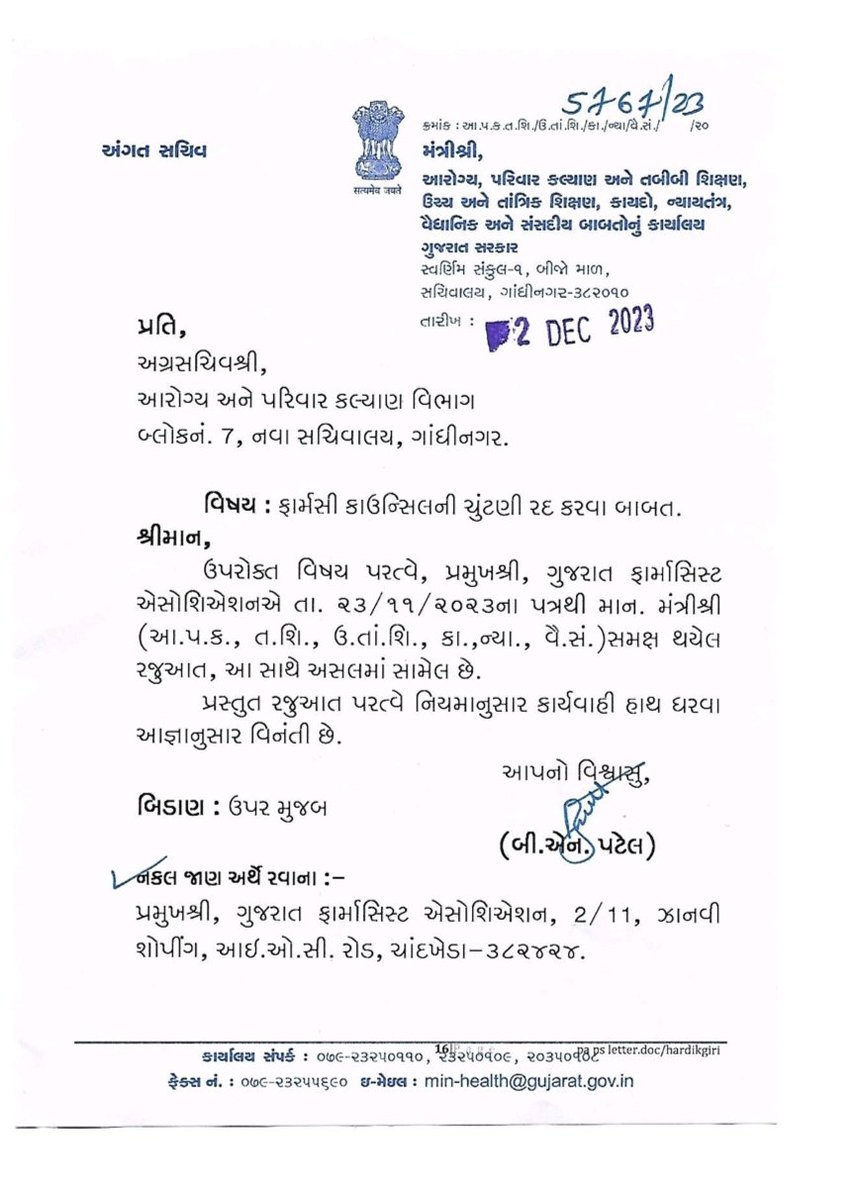 5767/23
ક્રમાંક : આ.પ.ક.ત.શિ./ઉ.તાં.શિ./કા./ન્યા/વૈ.સં./ /૨૦
અંગત સચિવ
सत्यमेव जयते
મંત્રીશ્રી,
આરોગ્ય, પરિવાર કલ્યાણ અને તબીબી શિક્ષણ,
ઉચ્ચ અને તાંત્રિક શિક્ષણ, કાયદો, ન્યાયતંત્ર,
વૈધાનિક અને સંસદીય બાબતોનું કાર્યાલય
ગુજરાત સરકાર
સ્વર્ણિમ સંકુલ-૧, બીજો માળ,
સચિવાલય, ગાંધીનગર-૩૮૨૦૧૦
તારીખ : 2 DEC 2023
પ્રતિ,
અગ્રસચિવશ્રી,
આરોગ્ય અને પરિવાર કલ્યાણ વિભાગ
બ્લોકનં. 7, નવા સચિવાલય, ગાંધીનગર.
વિષય : ફાર્મસી કાઉન્સિલની ચુંટણી રદ કરવા બાબત.
શ્રીમાન,
ઉપરોક્ત વિષય પરત્વે, પ્રમુખશ્રી, ગુજરાત ફાર્માસિસ્ટ
એસોશિએશનએ તા. ૨૩/૧૧/૨૦૨૩ના પત્રથી માન. મંત્રીશ્રી
(આ.પ.ક., ત.શિ., ઉ.તાં.શિ., કા.,ન્યા., વૈ.સં.)સમક્ષ થયેલ
રજુઆત, આ સાથે અસલમાં સામેલ છે.
પ્રસ્તુત રજુઆત પરત્વે નિયમાનુસાર કાર્યવાહી હાથ ધરવા
આજ્ઞાનુસાર વિનંતી છે.
આપનો વિશ્વાસુ,
બિડાણ : ઉપર મુજબ
(બી.એન. પટેલ)
નકલ જાણ અર્થે રવાના :-
પ્રમુખશ્રી, ગુજરાત ફાર્માસિસ્ટ એસોશિએશન, 2/11, ઝાનવી
શોપીંગ, આઈ.ઓ.સી. રોડ, ચાંદખેડા-૩૮૨૪૨૪.
16|Page pa ps letter.doc/hardikgiri
કાર્યાલય સંપર્ક : ૦૭૯-૨૩૨૫૦૧૧૦, ૨૩૨૫૦૧૦૯, ૨૦૩૫૦૧૦૮
ફેક્સ નં. : ૦૭૯-૨૩૨૫૫૬૯૦ ઇ-મેઇલ : min-health@gujarat.gov.in